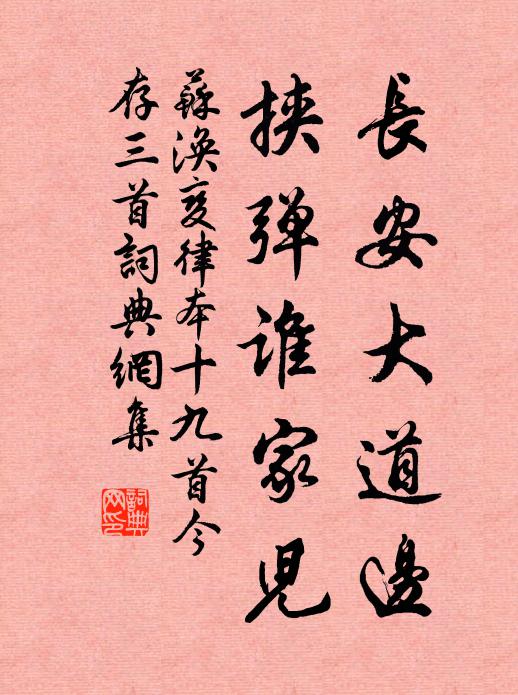 長安大道邊
挟弹誰家児
蘇渙變律本十九首今
存三首詞典網集
詞典
网印